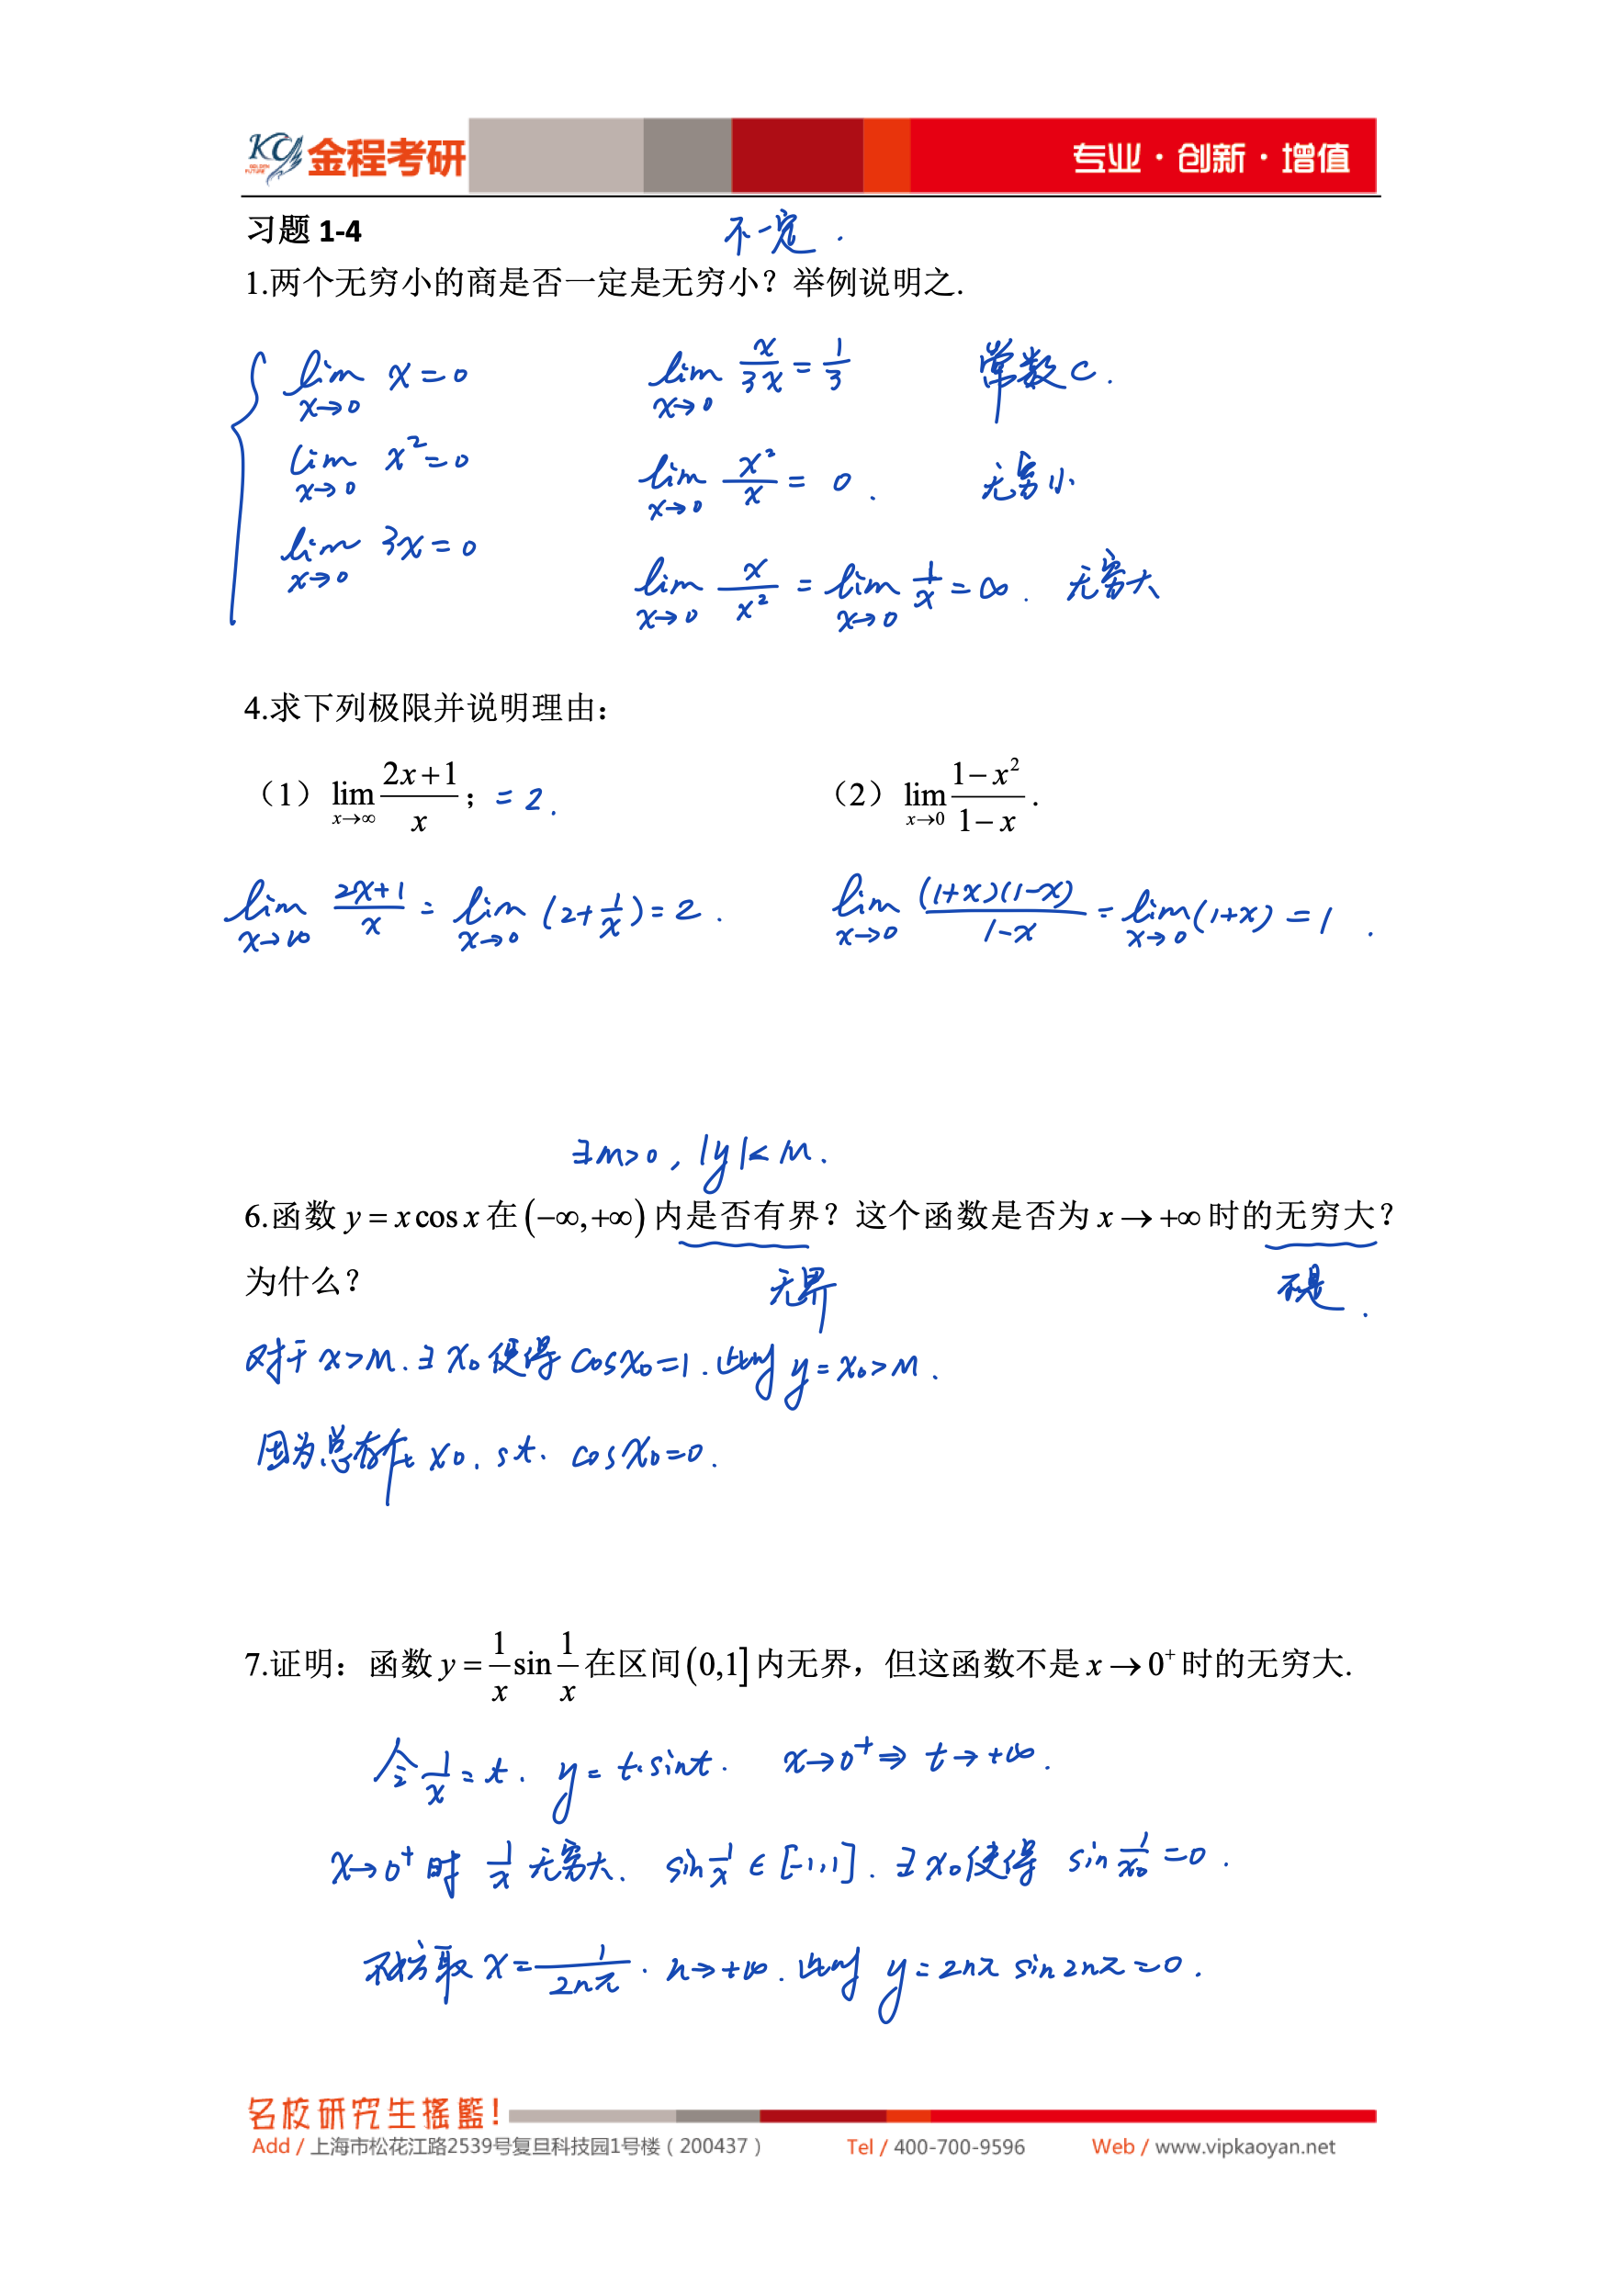 KC 金程考研 专业·创新·增值
GOLDEN FUTURE
习题 1-4
不一定.
1.两个无穷小的商是否一定是无穷小？举例说明之.
lim x→0 x=0 lim x→0 x/3x = 1/3 常数 c.
lim x→0 x²=0 lim x→0 x²/x = 0. 无穷小
lim x→0 3x=0 lim x→0 x/x² = lim x→0 1/x = ∞. 无穷大
4.求下列极限并说明理由：
（1）lim x→∞ (2x+1)/x；= 2. （2）lim x→0 (1−x²)/(1−x).
lim x→∞ (2x+1)/x = lim x→0 (2+1/x) = 2. lim x→0 (1+x)(1-x)/(1-x) = lim x→0 (1+x) = 1.
∃m>0, |y|<M.
6.函数 y = x cos x 在(−∞,+∞)内是否有界？这个函数是否为 x→+∞ 时的无穷大？
为什么？ 无界 不是.
对于 x>M.∃ x₀ 使得 cosx₀=1.此时 y=x₀>M.
因为总存在 x₀. st. cosx₀=0.
7.证明：函数 y = 1/x sin 1/x 在区间(0,1]内无界，但这函数不是 x→0⁺ 时的无穷大.
令 1/x = t. y = t·sint. x→0⁺ ⇒ t→+∞.
x→0⁺ 时 1/x 无穷大. sin 1/x ∈ [-1,1]. ∃ x₀ 使得 sin 1/x₀ =0.
不妨取 x= 1/2nπ. n→+∞. 此时 y=2nπ sin2nπ=0.
名校研究生摇篮！
Add / 上海市松花江路2539号复旦科技园1号楼（200437） Tel / 400-700-9596 Web / www.vipkaoyan.net